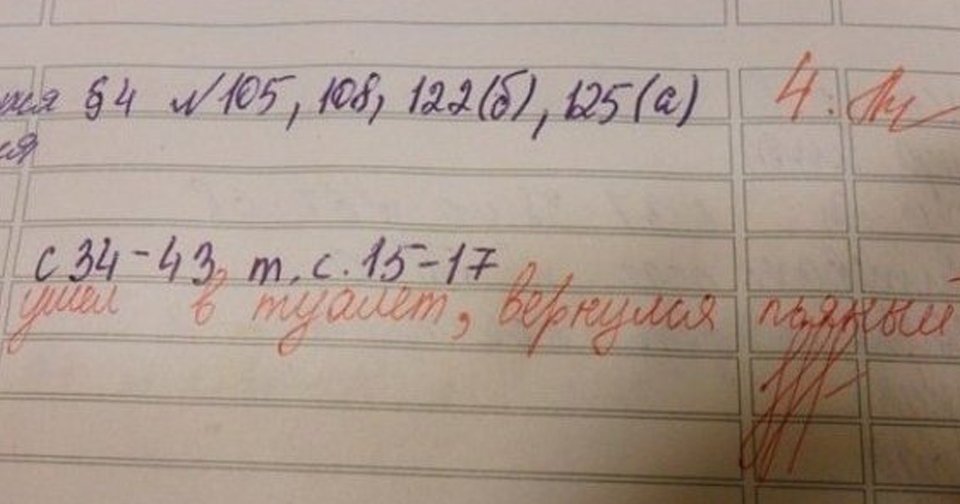 §4 №105, 108, 122(б), 125(а) 4.
с 34-43, т. с. 15-17
ушел в туалет, вернулся пьяный